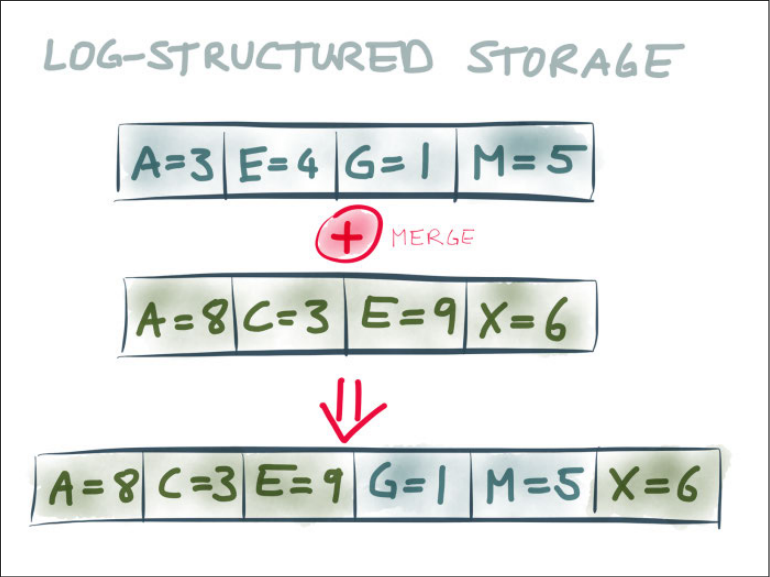 LOG-STRUCTURED STORAGE
A=3 E=4 G=1 M=5
+ MERGE
A=8 C=3 E=9 X=6
A=8 C=3 E=9 G=1 M=5 X=6